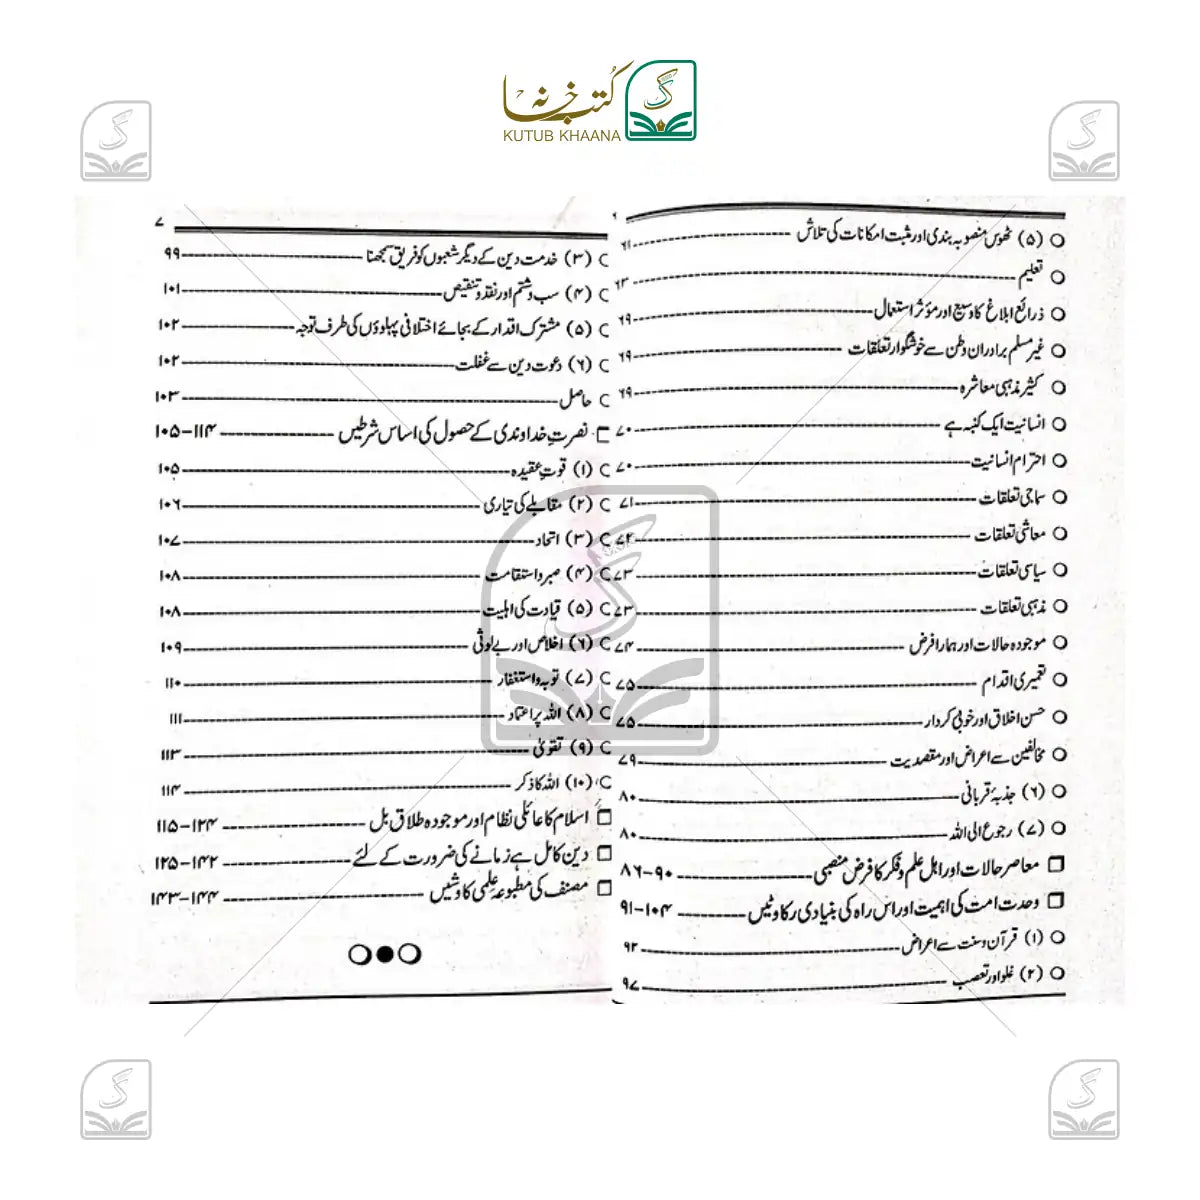 کتب خانہ
KUTUB KHAANA
○ (۵) ٹھوس منصوبہ بندی اور مثبت امکانات کی تلاش ۶۱
○ تعلیم ۶۳
○ ذرائع ابلاغ کا وسیع اور مؤثر استعمال ۶۹
○ غیر مسلم برادران وطن سے خوشگوار تعلقات ۶۹
○ کثیر مذہبی معاشرہ ۶۹
○ انسانیت ایک کنبہ ہے ۷۰
○ احترام انسانیت ۷۰
○ سماجی تعلقات ۷۱
○ معاشی تعلقات ۷۲
○ سیاسی تعلقات ۷۳
○ مذہبی تعلقات ۷۳
○ موجودہ حالات اور ہمارا فرض ۷۴
○ تعمیری اقدام ۷۵
○ حسن اخلاق اور خوبی کردار ۷۵
○ مخالفین سے اعراض اور مقصدیت ۷۹
○ (۶) جذبۂ قربانی ۸۰
○ (۷) رجوع الی اللہ ۸۰
□ معاصر حالات اور اہل علم و فکر کا فرض منصبی ۸۶-۹۰
□ وحدت امت کی اہمیت اور اس راہ کی بنیادی رکاوٹیں ۹۱-۱۰۴
○ (۱) قرآن و سنت سے اعراض ۹۲
○ (۲) غلو اور تعصب ۹۷
۷
(۳) خدمت دین کے دیگر شعبوں کو فریق سمجھنا ۹۹
(۴) سب و شتم اور نقد و تنقیص ۱۰۱
(۵) مشترک اقدار کے بجائے اختلافی پہلوؤں کی طرف توجہ ۱۰۲
(۶) دعوت دین سے غفلت ۱۰۲
حاصل ۱۰۳
□ نصرتِ خداوندی کے حصول کی اساس شرطیں ۱۰۵-۱۱۴
(۱) قوتِ عقیدہ ۱۰۵
(۲) مقابلے کی تیاری ۱۰۶
(۳) اتحاد ۱۰۷
(۴) صبر و استقامت ۱۰۸
(۵) قیادت کی اہلیت ۱۰۸
(۶) اخلاص اور بے لوثی ۱۰۹
(۷) توبہ و استغفار ۱۱۰
(۸) اللہ پر اعتماد ۱۱۱
(۹) تقویٰ ۱۱۳
(۱۰) اللہ کا ذکر ۱۱۴
□ اسلام کا عائلی نظام اور موجودہ طلاق بل ۱۱۵-۱۲۴
□ دین کامل ہے زمانے کی ضرورت کے لئے ۱۲۵-۱۴۲
□ مصنف کی مطبوعہ علمی کاوشیں ۱۴۳-۱۴۴